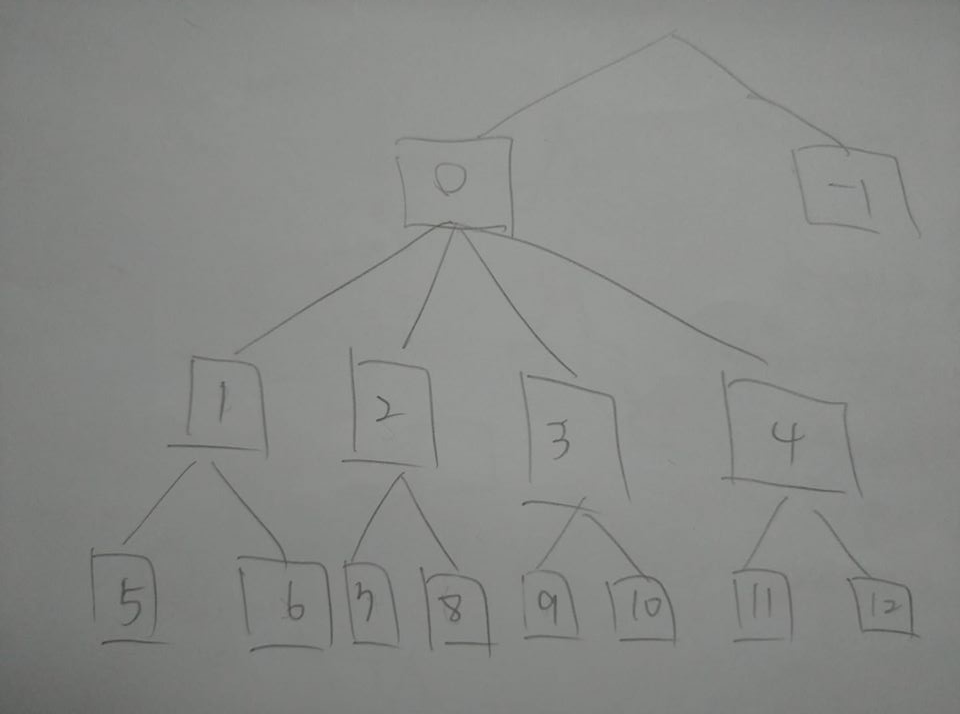 0
-1
1
2
3
4
5
6
7
8
9
10
11
12